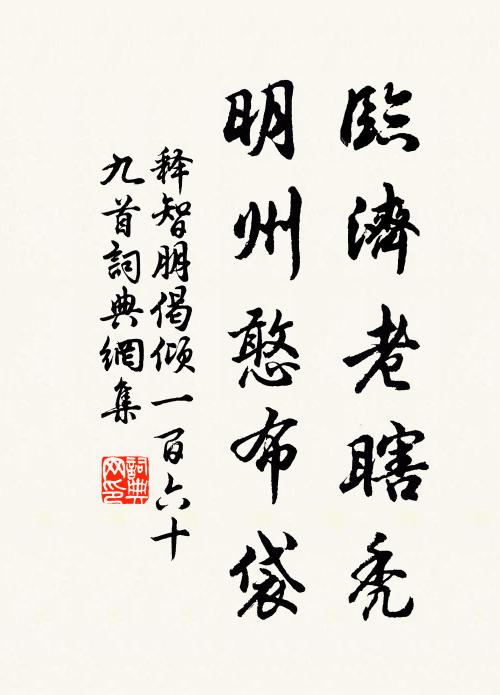 臨濟老瞎禿
明州憨布袋
释智朋偈傾一百六十
九首詞典網集
詞典網印